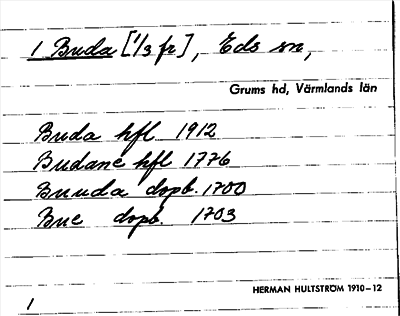 1 Buda [1/3 fr], Eds sn,
Grums hd, Värmlands län
Buda hfl 1912
Budane hfl 1776
Buuda dopb. 1700
Bue dopb. 1703
HERMAN HULTSTRÖM 1910–12
1